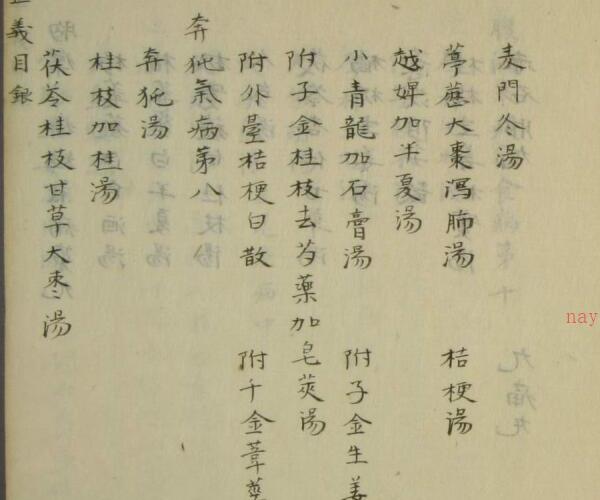 麦門冬湯
葶藶大棗瀉肺湯 桔梗湯
越婢加半夏湯
小青龍加石膏湯 附子金生姜
附子金桂枝去芍藥加皂莢湯
附外臺桔梗白散 附千金葦莖
奔㹠氣病第八
奔㹠湯
桂枝加桂湯
茯苓桂枝甘草大枣湯
義目錄
nay